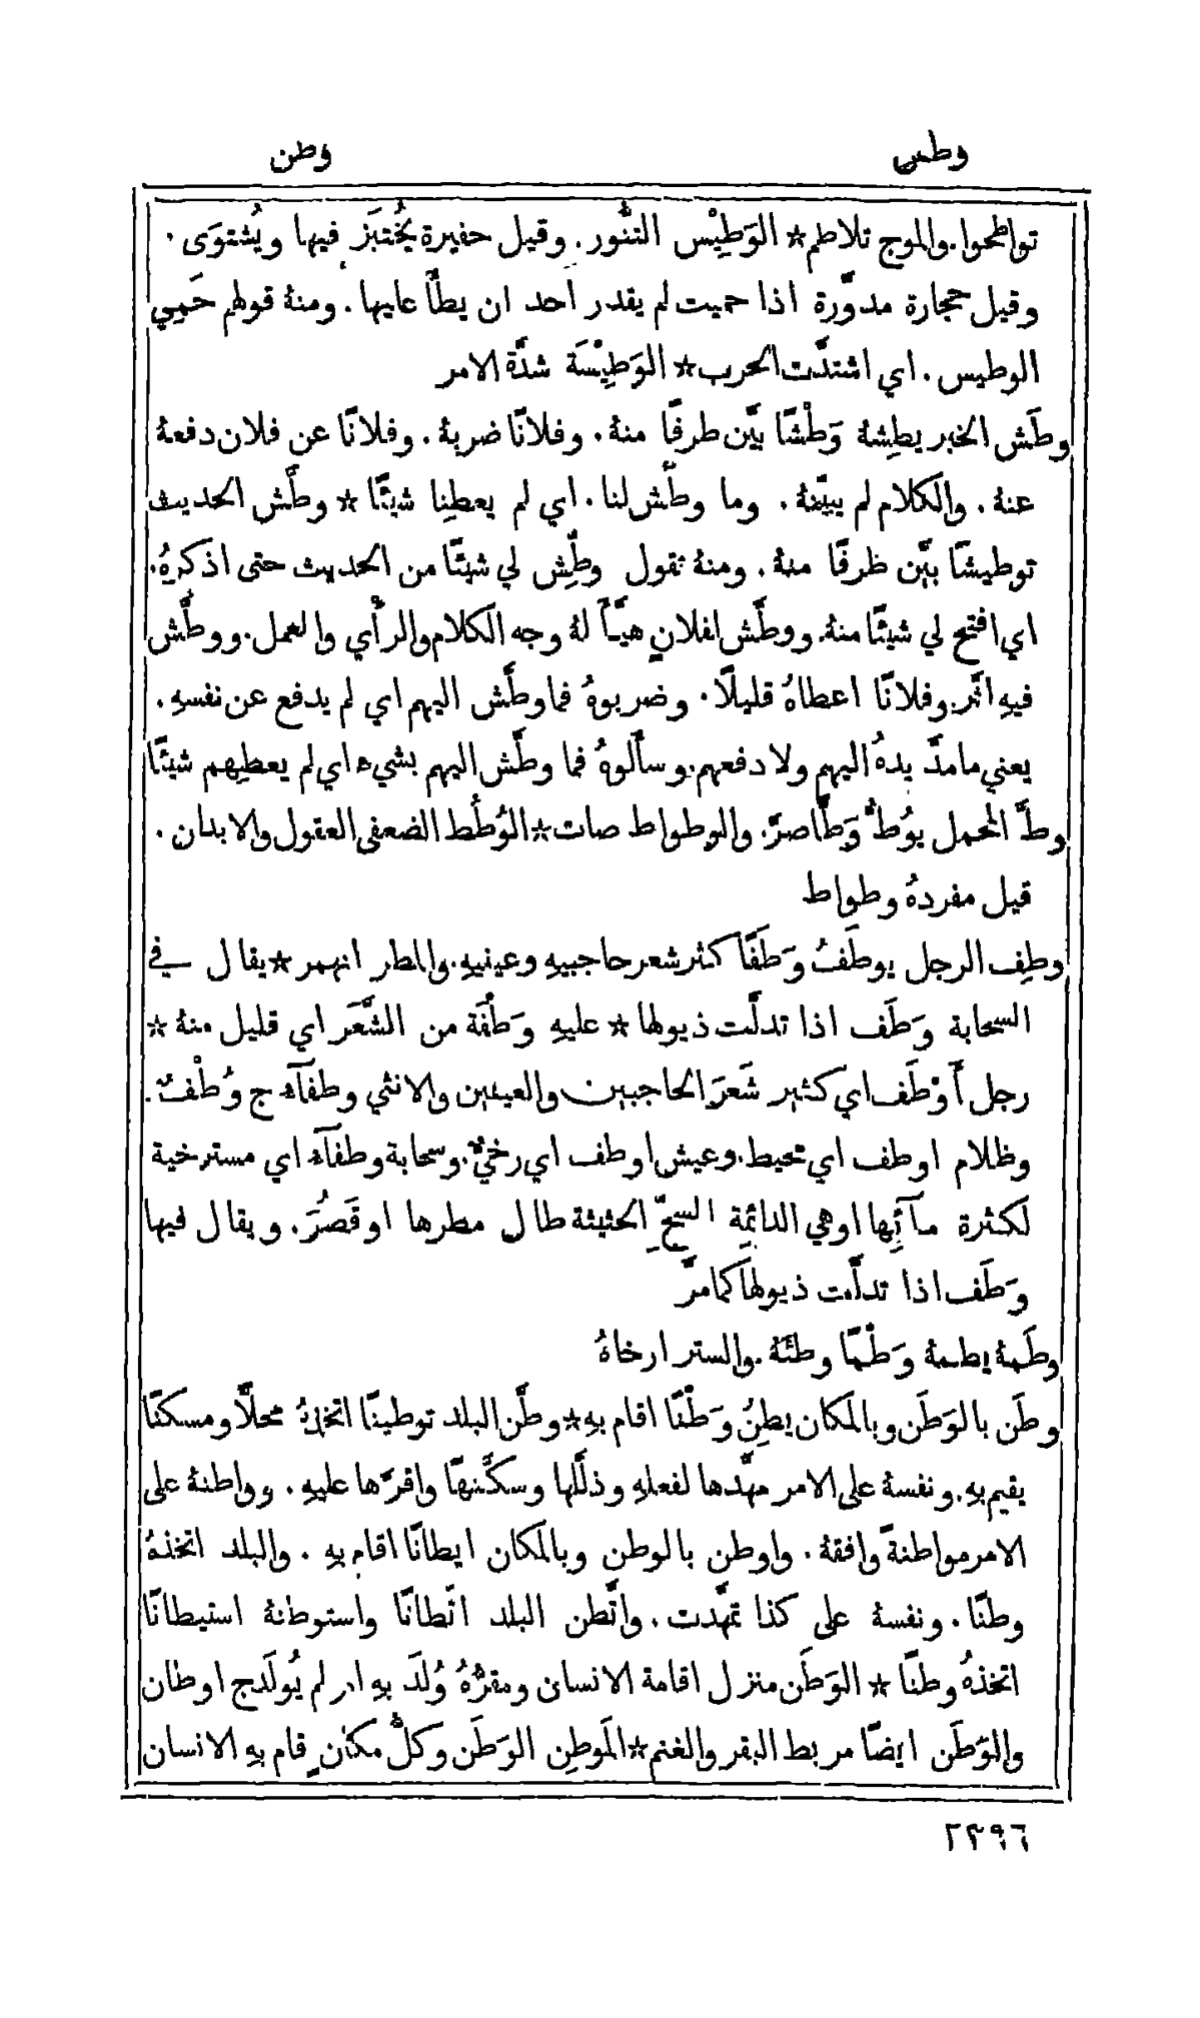 وطس
وطن
تواطحوا. والموج تلاطم * الوَطِيْس التنُّور. وقيل حفيرة يُختبَز فيها ويُشتوَى.
وقيل حجارة مدوَّرة اذا حميت لم يقدر احد ان يطأَ عليها. ومنهُ قولهم حَمِيَ
الوطيس. اي اشتدَّت الحرب * الوَطِيْسَة شدَّة الامر
وطَش الخبر يطِشهُ وَطْشًا بيَّن طرفًا منهُ. وفلانًا ضربهُ. وفلانًا عن فلان دفعهُ
عنهُ. والكلام لم يبيّنهُ. وما وطَّش لنا. اي لم يعطِنا شيئًا * وطَّش الحديث
توطيشًا بيَّن ظرفًا منهُ. ومنهُ تقول وطِّش لي شيئًا من الحديث حتى اذكرهُ.
اي افتح لي شيئًا منهُ. ووطَّش لفلانٍ هيَّأَ لهُ وجه الكلام والرأْي والعمل. ووطَّش
فيهِ اثَّر. وفلانًا اعطاهُ قليلًا. وضربوهُ فما وطَّش اليهم اي لم يدفع عن نفسهِ.
يعني ما مدَّ يدهُ اليهم ولا دفعهم. وسأَلوهُ فما وطَّش اليهم بشيء اي لم يعطِهم شيئًا
وطَّ المحمل يوُطُّ وَطًّا صرَّ. والوطواط صات * الوُطُط الضعفى العقول والابدان.
قيل مفردهُ وطواط
وطِف الرجل يوطَفُ وَطَفًا كثر شعر حاجبيهِ وعينيهِ. والمطر انهمر * يقال في
السحابة وَطَف اذا تدلَّت ذيولها * عليهِ وَطْفَة من الشَّعَر اي قليل منهُ *
رجل أَوْطَف اي كثير شَعَر الحاجبين والعينين والانثى وطفآء ج وُطْفٌ.
وظلام اوطف اي محيط. وعيش اوطف اي رخيٌّ. وسحابة وطفآء اي مسترخية
لكثرة مآئِها او هي الدائمة السحِّ الحثيثة طال مطرها او قَصُرَ. ويقال فيها
وَطَف اذا تدلَّت ذيولها كما مرَّ
وطَمهُ يطمهُ وَطْمًا وطئهُ. والستر ارخاهُ
وطَن بالوَطَن وبالمكان يطِنُ وَطْنًا اقام بهِ * وطَّن البلد توطينًا اتخذهُ محلًّا ومسكنًا
يقيم بهِ. ونفسهُ على الامر مهَّدها لفعلهِ وذلَّلها وسكَّنها واقرَّها عليهِ. وواطنهُ على
الامر مواطنةً وافقهُ. واوطن بالوطن وبالمكان ايطانًا اقام بهِ. والبلد اتخذهُ
وطنًا. ونفسهُ على كذا تمهَّدت. واتَّطن البلد اتّطانًا واستوطنهُ استيطانًا
اتخذهُ وطنًا * الوَطَن منزل اقامة الانسان ومقرُّهُ وُلدَ بهِ او لم يُولَد ج اوطان
والوَطَن ايضًا مربط البقر والغنم * المَوطِن الوَطَن وكلُّ مكانٍ قام بهِ الانسان
٢٣٩٦